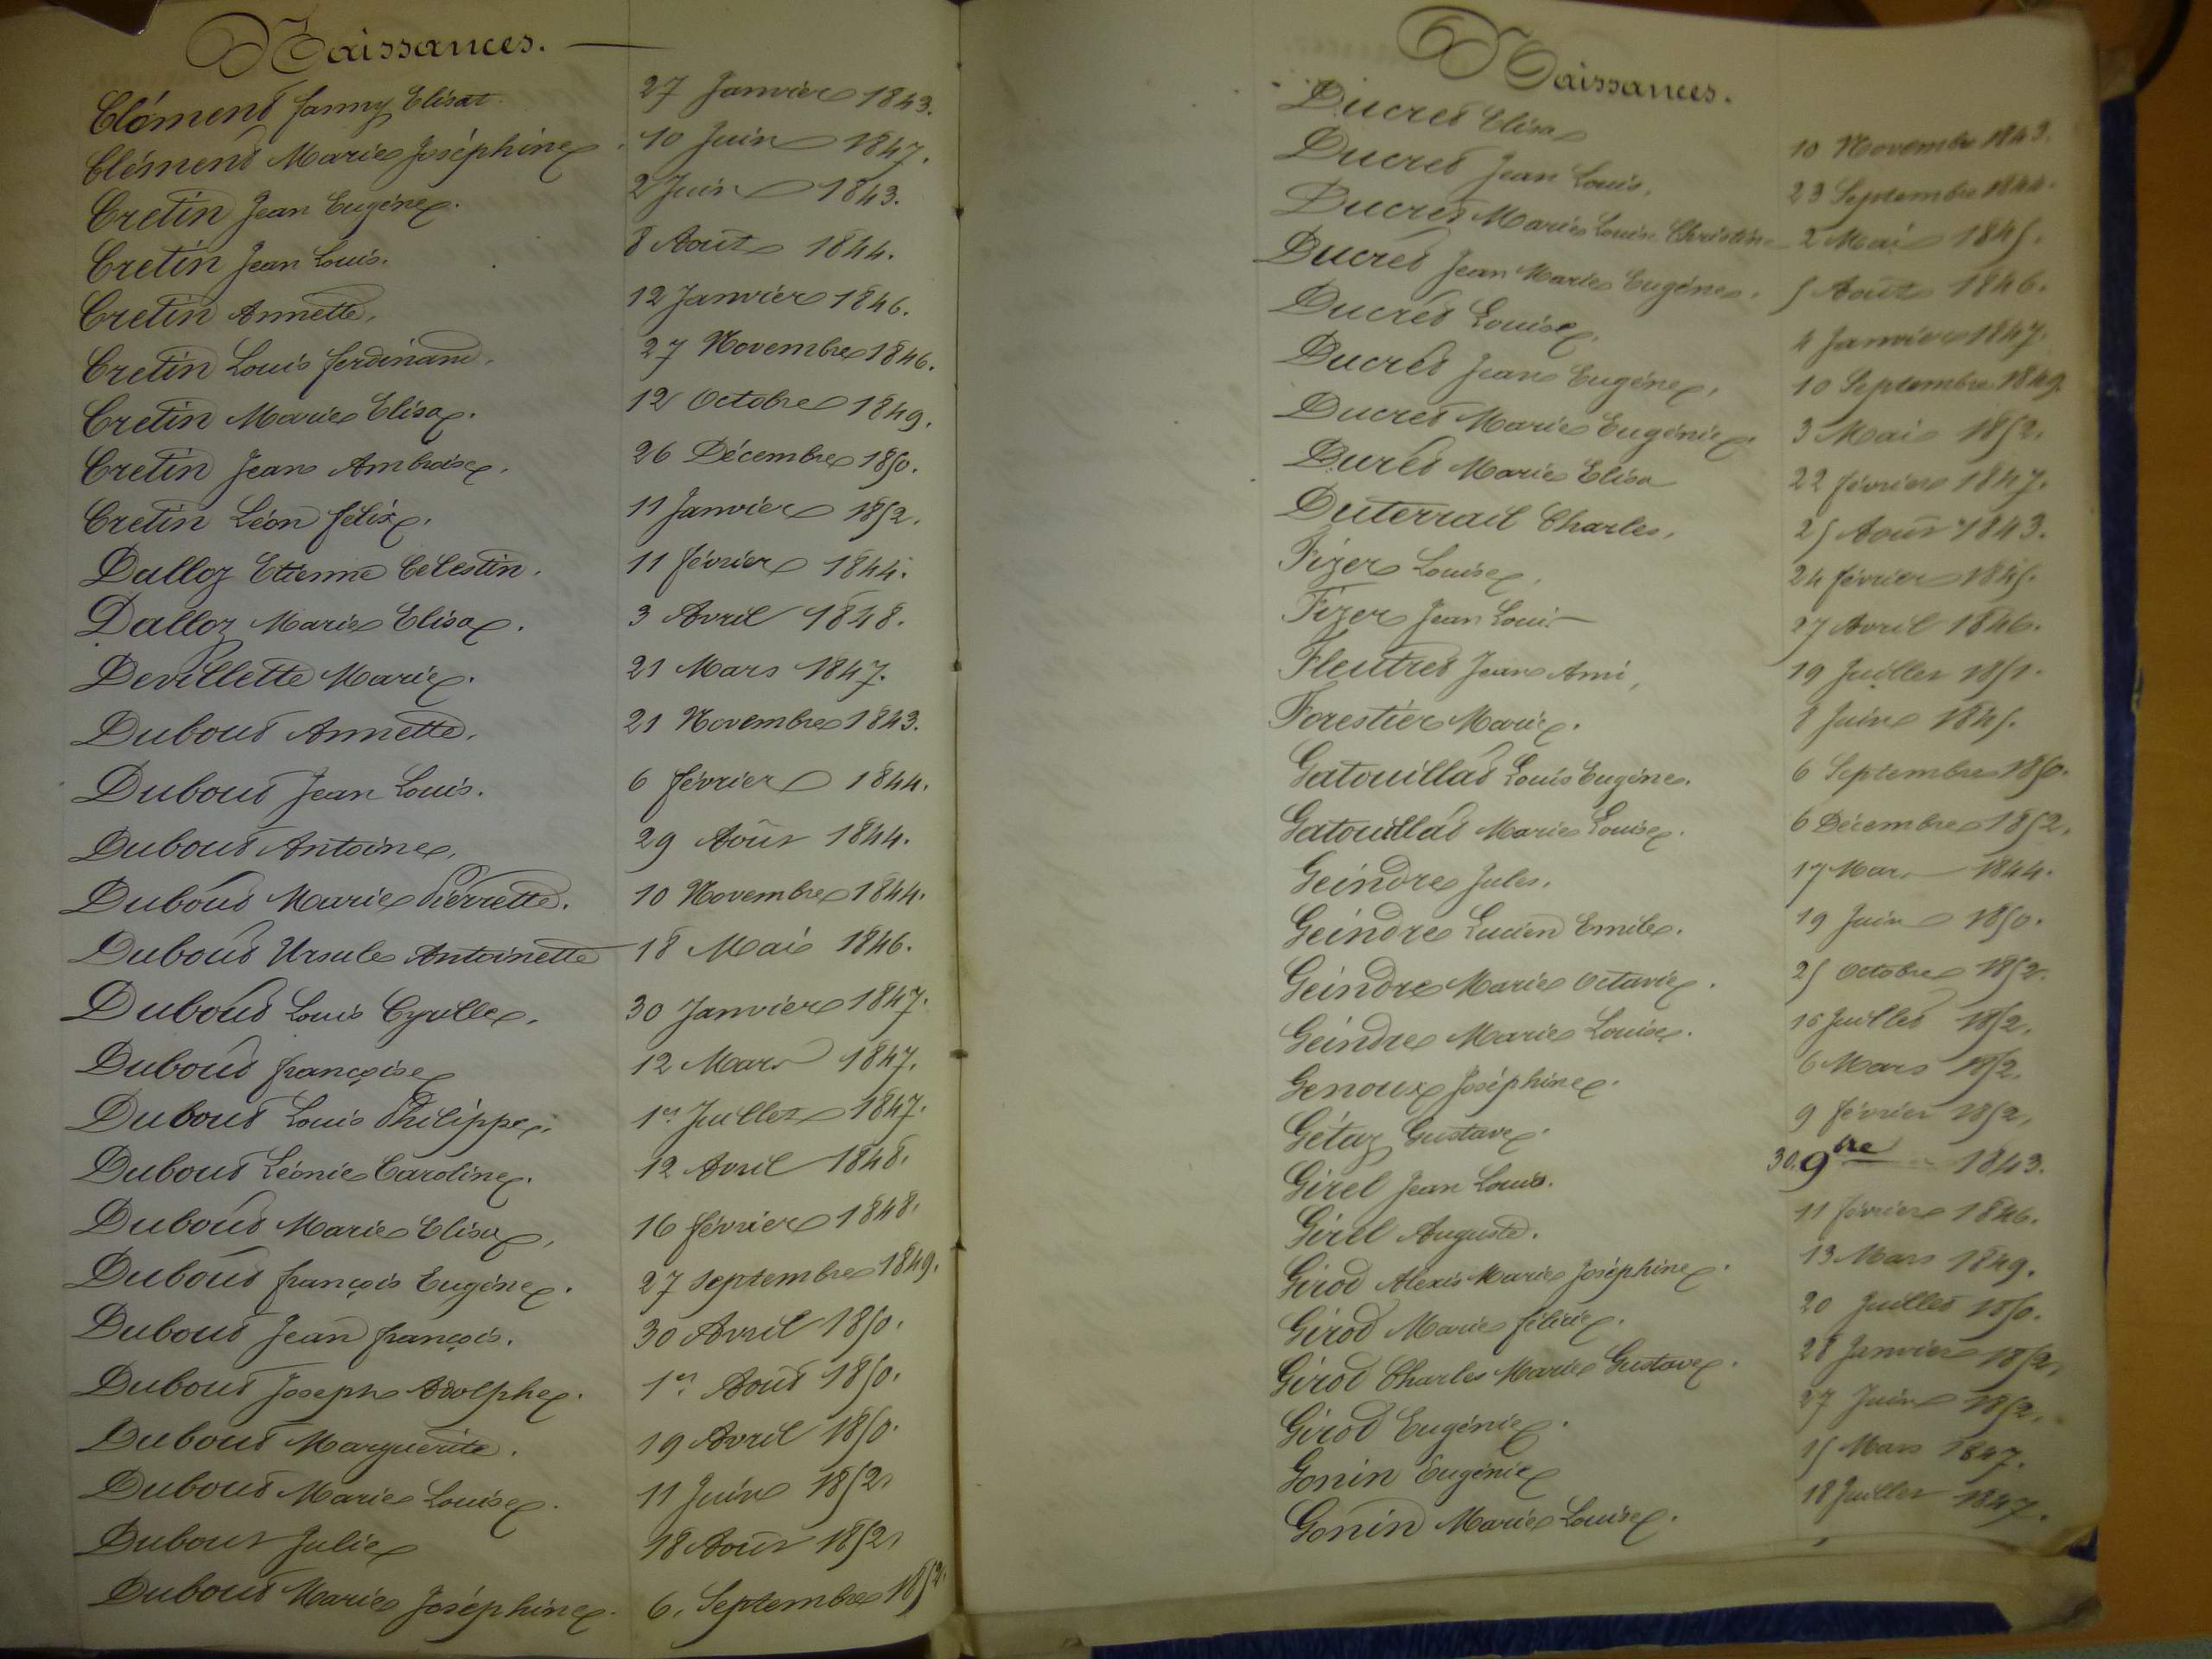 Naissances.
Clément fanny Elisa 27 Janvier 1843.
Clément Marie Joséphine 10 Juin 1847.
Cretin Jean Eugéne. 2 Juin 1843.
Cretin Jean Louis. 8 Aout 1844.
Cretin Annette. 12 Janvier 1846.
Cretin Louis ferdinand. 27 Novembre 1846.
Cretin Marie Elisa. 12 Octobre 1849.
Cretin Jean Ambroise. 26 Décembre 1850.
Cretin Léon félix. 11 Janvier 1852.
Dalloz Etienne Célestin. 11 février 1844.
Dalloz Marie Elisa. 3 Avril 1848.
Devillette Marie. 21 Mars 1847.
Dubout Annette. 21 Novembre 1843.
Dubout Jean Louis. 6 février 1844.
Dubout Antoine. 29 Aout 1844.
Dubout Marie Pierrette. 10 Novembre 1844.
Dubout Ursule Antoinette 18 Mai 1846.
Dubout Louis Cyrille. 30 Janvier 1847.
Dubout françoise 12 Mars 1847.
Dubout Louis Philippe. 1er Juillet 1847.
Dubout Léonie Caroline. 12 Avril 1848.
Dubout Marie Elisa. 16 février 1848.
Dubout françois Eugéne. 27 Septembre 1849.
Dubout Jean françois. 30 Avril 1850.
Dubout Joseph Adolphe. 1er Aout 1850.
Dubout Marguerite. 19 Avril 1850.
Dubout Marie Louise. 11 Juin 1852.
Dubout Julie 18 Aout 1852.
Dubout Marie Joséphine. 6. Septembre 1852.
Naissances.
Ducret Elisa 10 Novembre 1843.
Ducret Jean Louis. 23 Septembre 1844.
Ducret Marie Louise Christine 2 Mai 1845.
Ducret Jean Marie Eugéne. 5 Aout 1846.
Ducret Louise. 4 Janvier 1847.
Ducret Jean Eugéne. 10 Septembre 1849.
Ducret Marie Eugénie. 3 Mai 1852.
Duret Marie Elisa 22 février 1847.
Duterrail Charles. 25 Aout 1843.
Fizer Louise. 24 février 1845.
Fizer Jean Louis 27 Avril 1846.
Fleutret Jean Ami. 19 Juillet 1851.
Forestier Marie. 8 Juin 1845.
Gatouillat Louis Eugéne. 6 Septembre 1850.
Gatouillat Marie Louise. 6 Décembre 1852.
Geindre Jules. 17 Mars 1844.
Geindre Lucien Emile. 19 Juin 1850.
Geindre Marie Octavie. 25 Octobre 1852.
Geindre Marie Louise. 16 Juillet 1852.
Genoux Joséphine. 6 Mars 1852.
Gétaz Gustave. 9 février 1852.
Girel Jean Louis. 30. 9bre 1843.
Girel Auguste. 11 février 1846.
Girod Alexis Marie Joséphine. 13 Mars 1849.
Girod Marie félicie. 20 Juillet 1850.
Girod Charles Marie Gustave. 28 Janvier 1852.
Girod Eugénie. 27 Juin 1852.
Gonin Eugénie 15 Mars 1847.
Gonin Marie Louise. 18 Juillet 1847.